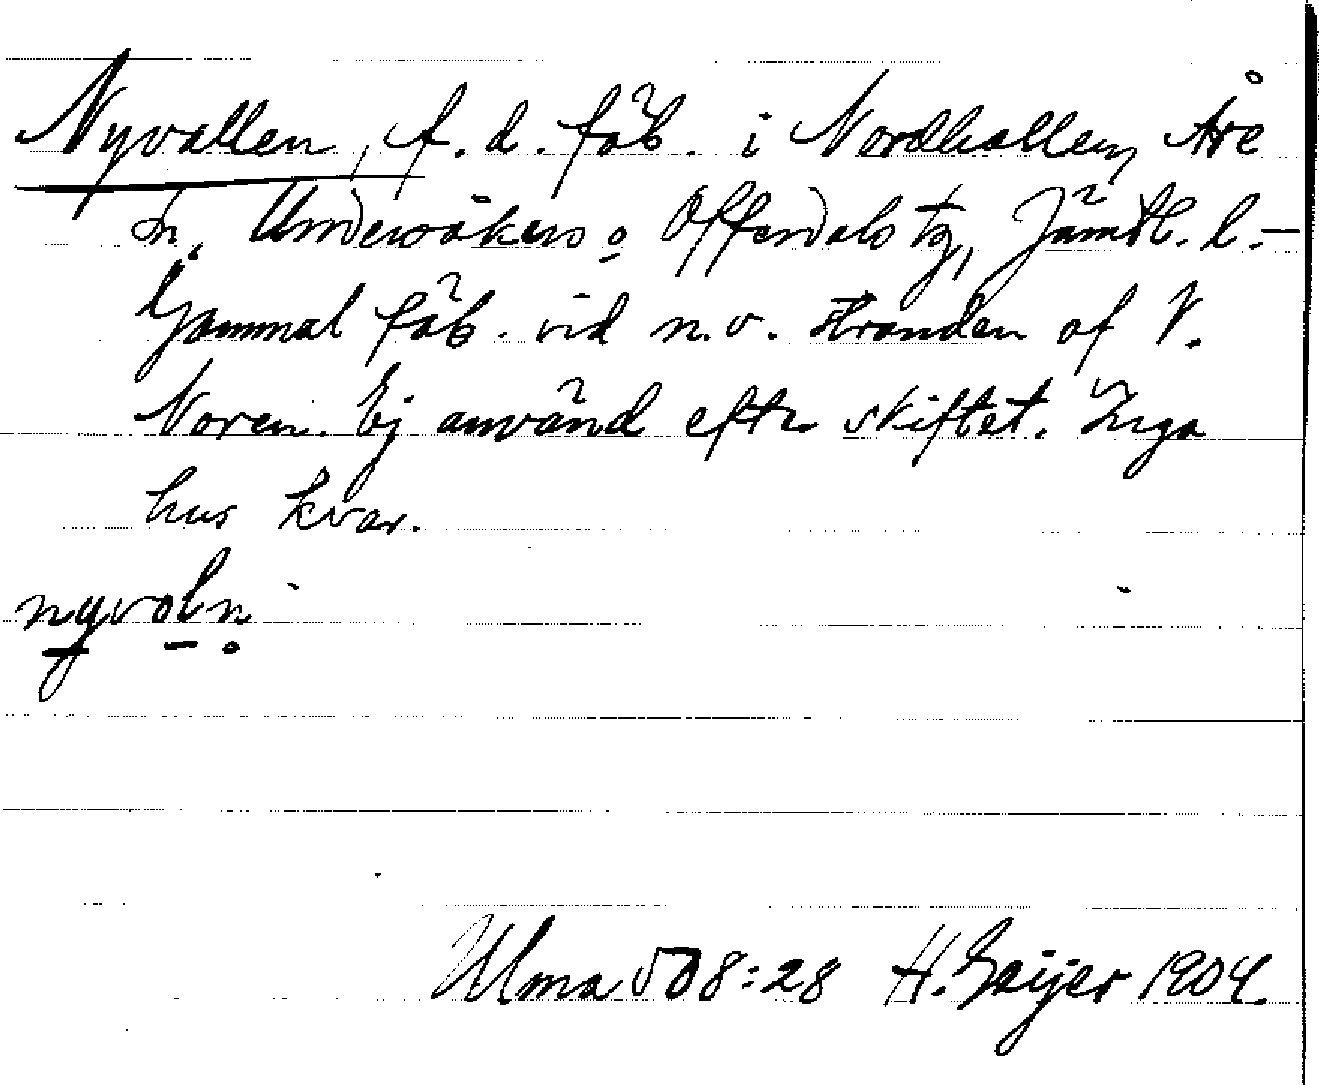 Nyvallen, f. d. fäb. i Nordhallen, Åre
sn, Undersåkers o Offerdals tg, Jämtl. l. –
Gammal fäb. vid n.v. stranden af V.
Noren. Ej använd efter skiftet. Inga
hus kvar.
nyvoln
Ulma 508:28 H. Geijer 1904.